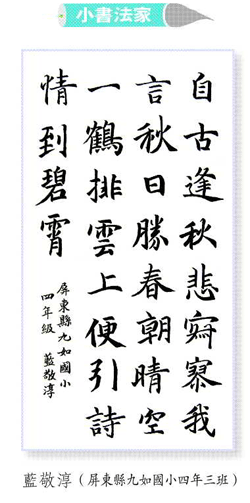 小書法家
自古逢秋悲寂寥我
言秋日勝春朝晴空
一鶴排雲上便引詩
情到碧霄
屏東縣九如國小
四年級 藍敬淳
藍敬淳（屏東縣九如國小四年三班）